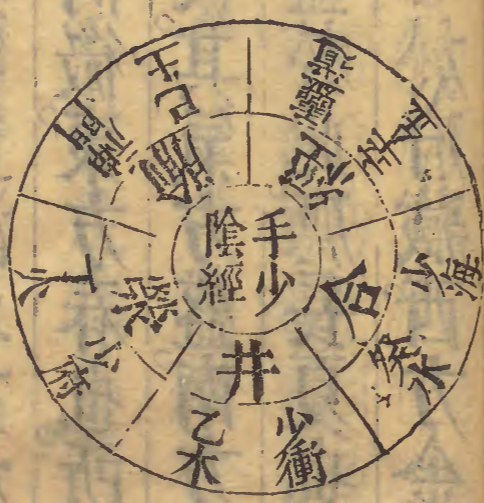 手少
陰經
井
少衝
乙木
滎
少府
丁火
腧
神門
己土
經
靈道
辛金
合
少海
癸水